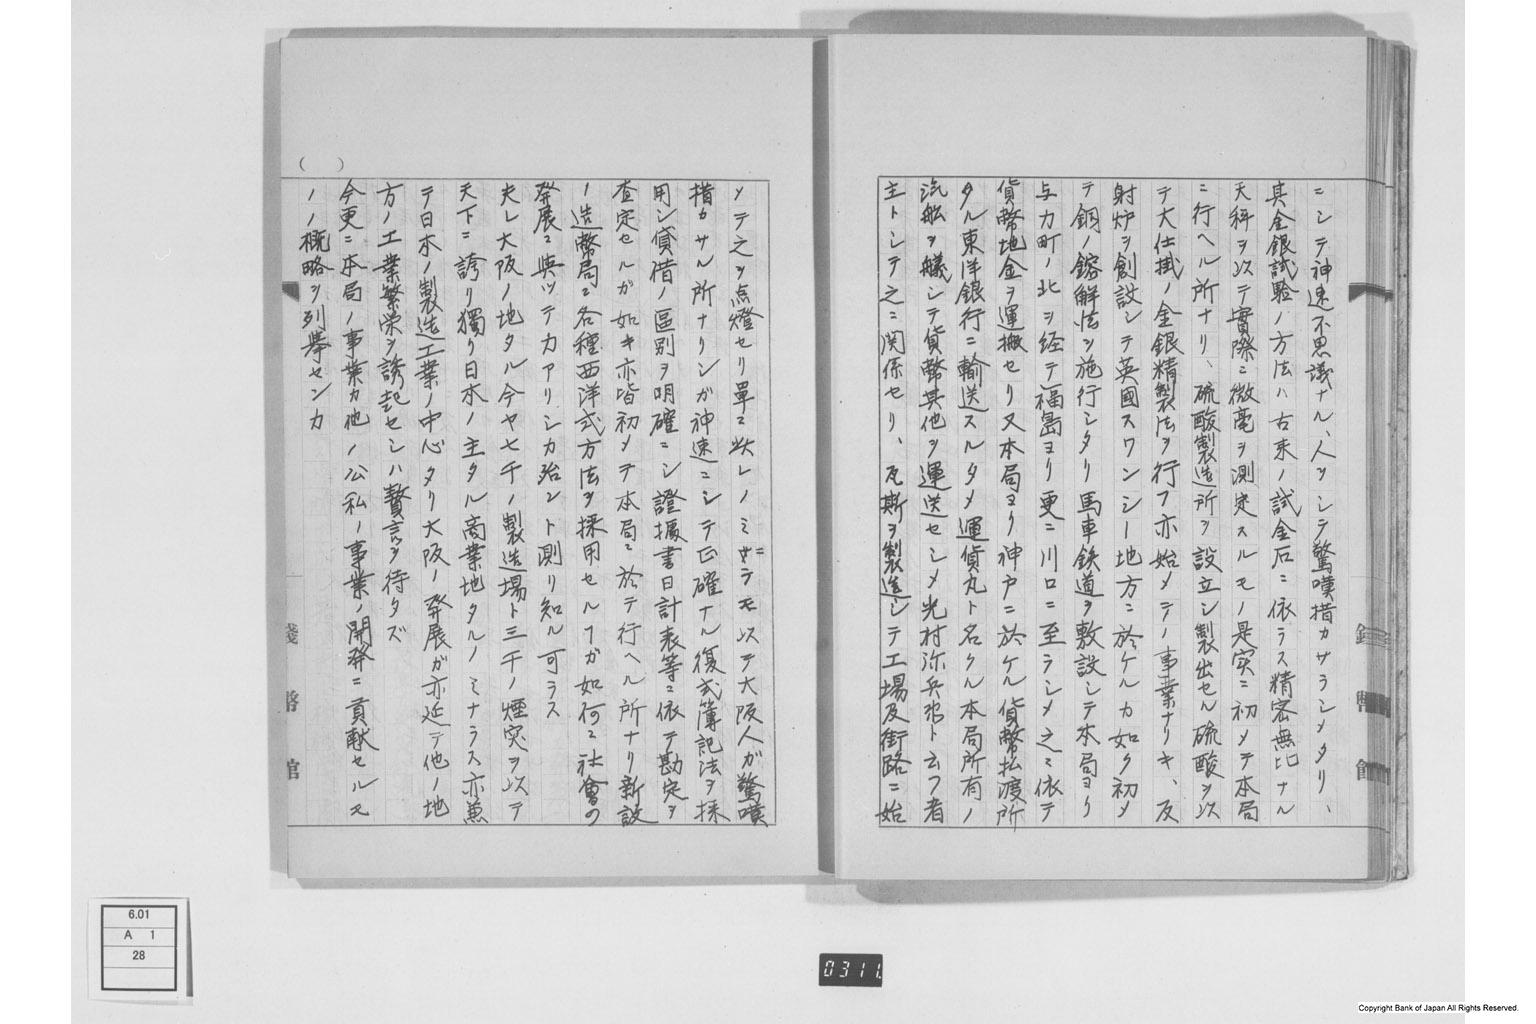 ニシテ神速不思議ナル、人ヲシテ驚嘆措カサラシメタリ、
其金銀試験ノ方法ハ古来ノ試金石ニ依ラス精密無比ナル
天秤ヲ以テ實際ニ微毫ヲ測定スルモノ是実ニ初メテ本局
ニ行ヘル所ナリ、硫酸製造所ヲ設立シ製出セル硫酸ヲ以
テ大仕掛ノ金銀精製法ヲ行フ亦始メテノ事業ナリキ、反
射炉ヲ創設シテ英國スワンシー地方ニ於ケルカ如ク初メ
テ銅ノ鎔解法ヲ施行シタリ馬車鉄道ヲ敷設シテ本局ヨリ
与力町ノ北ヲ経テ福島ヨリ更ニ川口ニ至ラシメ之ニ依テ
貨幣地金ヲ運搬セリ又本局ヨリ神戸ニ於ケル貨幣払渡所
タル東洋銀行ニ輸送スルタメ運貨丸ト名クル本局所有ノ
汽船ヲ艤シテ貨幣其他ヲ運送セシメ光村弥兵衛ト云フ者
主トシテ之ニ関係セリ、瓦斯ヲ製造シテ工場及街路ニ始
メテ之ヲ点燈セリ單ニ此レノミニテモ以テ大阪人ガ驚嘆
措カサル所ナリシガ神速ニシテ正確ナル復式簿記法ヲ採
用シ貸借ノ區別ヲ明確ニシ證據書日計表等ニ依テ勘定ヲ
査定セルガ如キ亦皆初メテ本局ニ於テ行ヘル所ナリ新設
ノ造幣局ニ各種西洋式方法ヲ採用セルヿガ如何ニ社會の
発展ニ與ツテカアリシカ殆ント測リ知ル可ラス
夫レ大阪ノ地タル今ヤ七千ノ製造場ト三千ノ煙突ヲ以テ
天下ニ誇リ獨リ日本ノ主タル商業地タルノミナラス亦兼
テ日本ノ製造工業ノ中心タリ大阪ノ発展ガ亦延テ他ノ地
方ノ工業繁栄ヲ誘起セシハ贅言ヲ待タズ
今更ニ本局ノ事業カ他ノ公私ノ事業ノ開発ニ貢献セルモ
ノノ概略ヲ列挙センカ
銭幣館
6.01
A 1
28
0311
Copyright Bank of Japan All Rights Reserved.